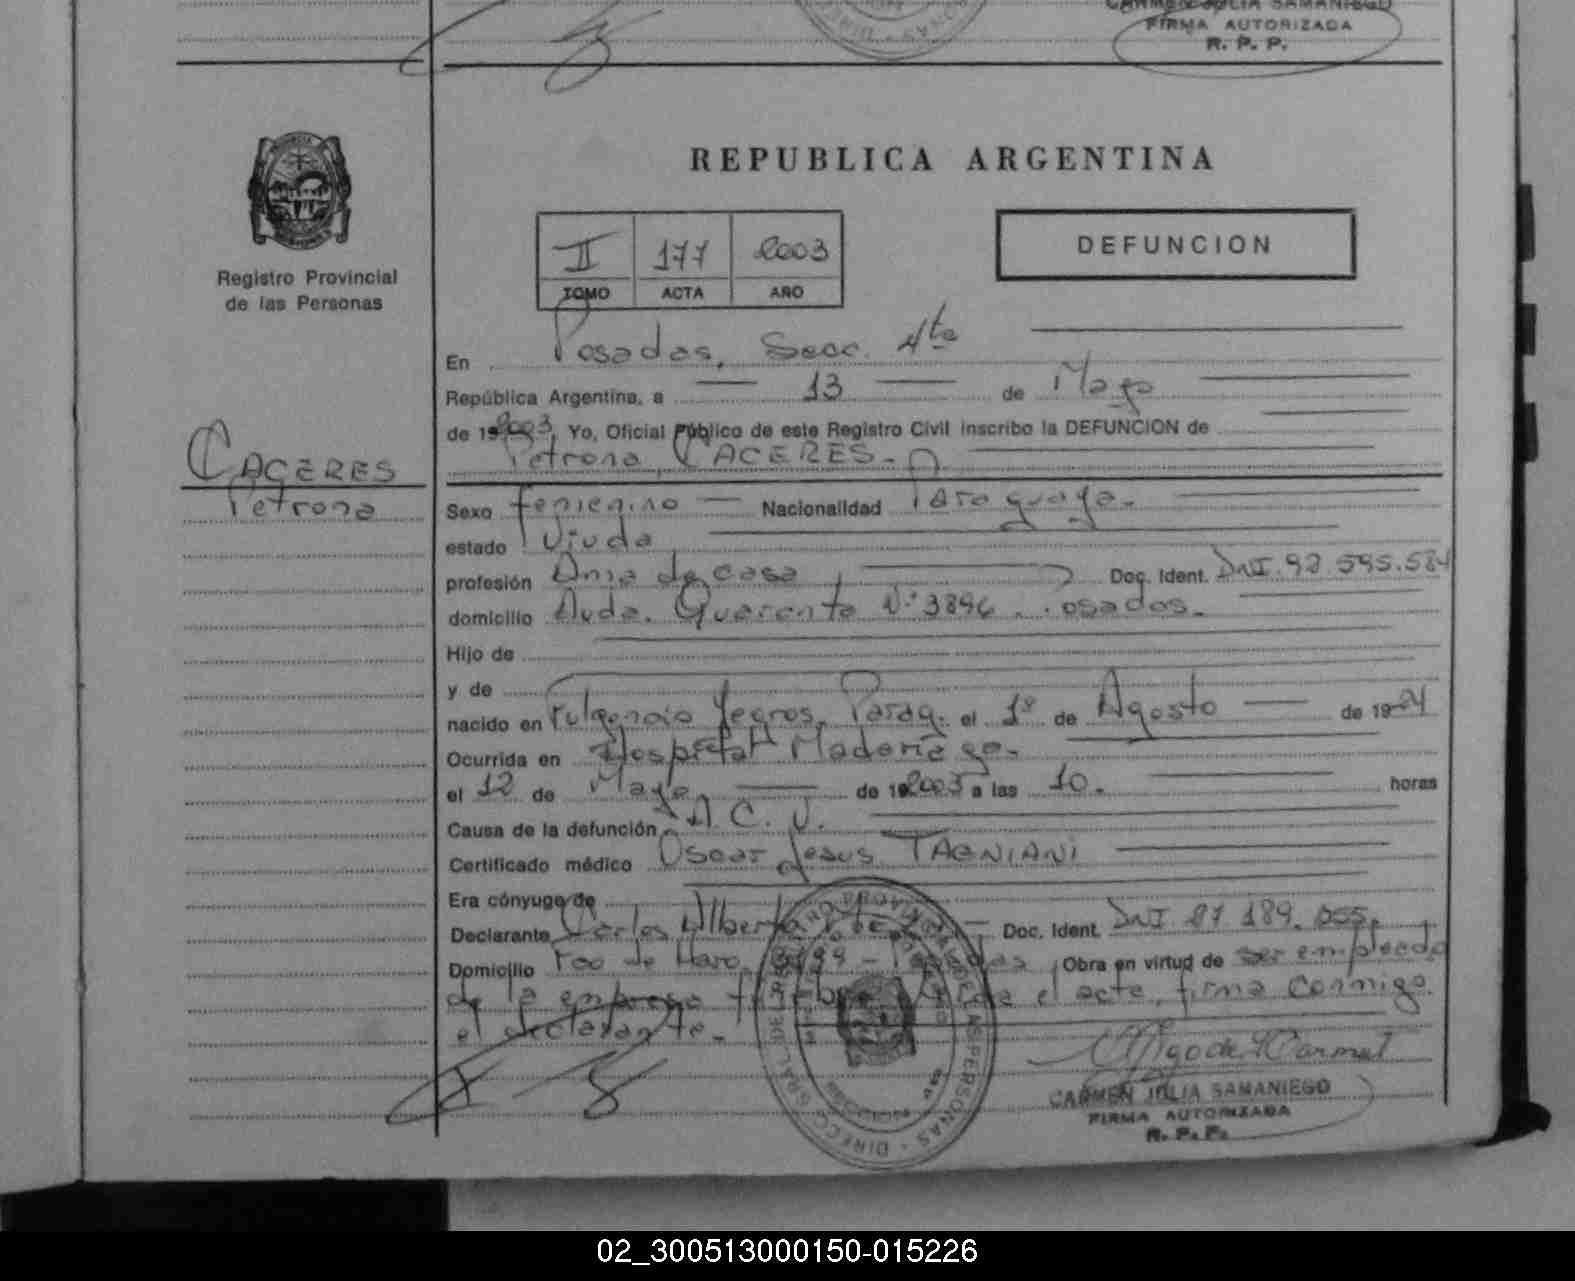 CARMEN JULIA SAMANIEGO
FIRMA AUTORIZADA
R. P. P.
Registro Provincial
de las Personas
CACERES
Petrona
REPUBLICA ARGENTINA
II 177 2003
TOMO ACTA AÑO
DEFUNCION
En Posadas, Secc. 4ta
República Argentina, a 13 de Mayo
de 19 2003, Yo, Oficial Público de este Registro Civil inscribo la DEFUNCION de
Petrona, CACERES.
Sexo femenino Nacionalidad Paraguaya.
estado Viuda
profesión Ama de casa Doc. Ident. DNI 92.595.584
domicilio Avda. Quaranta Nº 3896. Posadas.
Hijo de
y de
nacido en Fulgencio Yegros, Parag. el 1º de Agosto de 1924
Ocurrida en Hospital Madariaga.
el 12 de Mayo de 19 2003 a las 10. horas
Causa de la defunción A. C. V.
Certificado médico Oscar Jesus TAGNIANI
Era cónyuge de
Declarante Carlos Alberto Doc. Ident. DNI 17.189.055.
Domicilio Fco de Haro Posadas, Obra en virtud de ser empleado
de la empresa fúnebre el acta, firma conmigo
el declarante.
CARMEN JULIA SAMANIEGO
FIRMA AUTORIZADA
R. P. P.
02_300513000150-015226